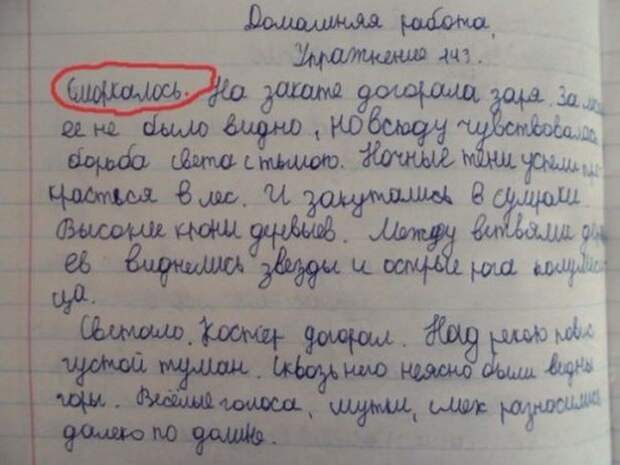 Домашняя работа.
Упражнение 143.
Сморкалось. На закате догорала заря. За
ее не было видно, но всюду чувствовалась
борьба света с тьмою. Ночные тени успели про
красться в лес. И закутались в сумраки
Высокие крони деревьев. Между ветвями дер
ев виднелись звезды и острые рога полумеся
ца.
Светало. Костёр догорал. Над рекою повис
густой туман. Сквозь него неясно были видны
горы. Весёлые голоса, шутки, смех разносились
далеко по долине.